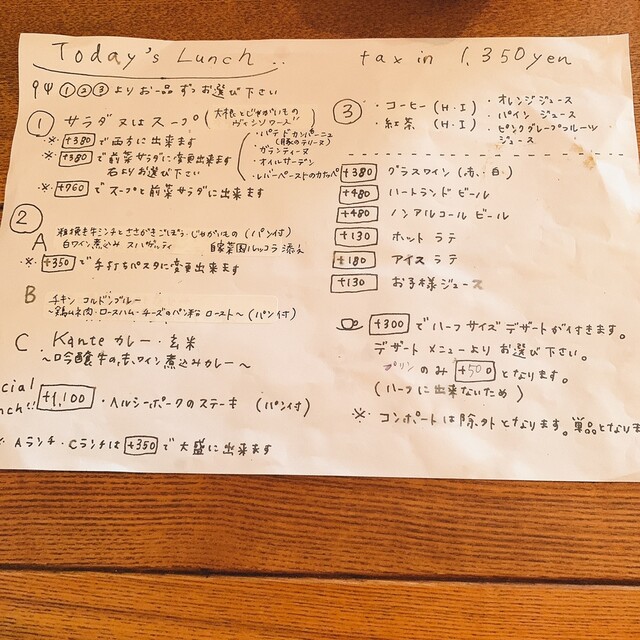 Today's Lunch..
tax in 1,350yen
①②③よりお一品ずつお選び下さい
① サラダ又はスープ (大根とじゃがいもの
ヴィシソワーズ)
※ +380 で両方に出来ます
※ +380 で前菜サラダに変更出来ます
右よりお選び下さい
・パテドカンパーニュ
(豚のテリーヌ)
・ガランティーヌ
・オイルサーデン
・レバーペーストのカナペ
※ +760 でスープと前菜サラダに出来ます
②
A 粗挽き牛ミンチとささがきごぼう・じゃがいもの (パン付)
白ワイン煮込み スパゲッティ 自家菜園ルッコラ添え
※ +350 で手打ちパスタに変更出来ます
B チキン コルドンブルー
〜鶏ムネ肉・ロースハム・チーズのパン粉 ロースト〜 (パン付)
C. Kanteカレー・玄米
〜口今酉襄牛の赤ワイン煮込みカレー〜
cial
nch!! +1,100 ・ヘルシーポークのステーキ (パン付)
※ Aランチ・Cランチは +350 で大盛に出来ます
③ ・コーヒー (H・I)
・紅茶 (H・I)
・オレンジジュース
・パインジュース
・ピンクグレープフルーツ
ジュース
+380 グラスワイン (赤、白)
+480 ハートランドビール
+480 ノンアルコールビール
+130 ホットラテ
+180 アイスラテ
+130 お子様ジュース
+300 でハーフサイズデザートが付きます。
デザートメニューよりお選び下さい。
プリンのみ +500 となります。
(ハーフに出来ないため)
※ コンポートは除外となります。単品となりま